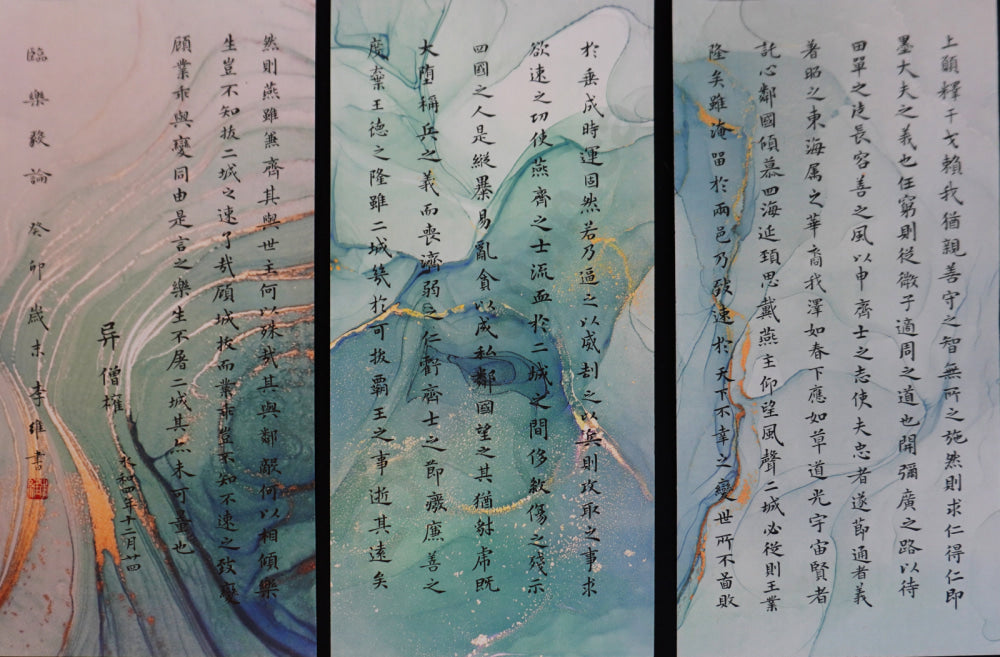 上願釋干戈賴我猶親善守之智無所之施然則求仁得仁即
墨大夫之義也任窮則從微子適周之道也開彌廣之路以待
田單之徒長容善之風以申齊士之志使夫忠者遂節通者義
著昭之東海属之華裔我澤如春下應如草道光宇宙賢者
託心鄰國傾慕四海延頸思戴燕主仰望風聲二城必從則王業
隆矣雖淹留於兩邑乃致速於天下不幸之變世所不啚敗
於垂成時運固然若乃逼之以威劫之以兵則攻取之事求
欲速之功使燕齊之士流血於二城之間侈敘傷之殘示
四國之人是縱暴易亂貪以成私鄰國望之其猶豺虎既
大墮稱兵之義而喪濟弱之仁虧齊士之節癈廉善之
度棄王德之隆雖二城幾於可拔霸王之事逝其遠矣
然則燕雖兼齊其與世主何以殊哉其與鄰敵何以相傾樂
生豈不知拔二城之速了哉顧城拔而業乖豈不知不速之致變
顧業乖與變同由是言之樂生不屠二城其亦未可量也
异僧權
永和四年十二月廿四
臨樂毅論 癸卯歲末 李維書